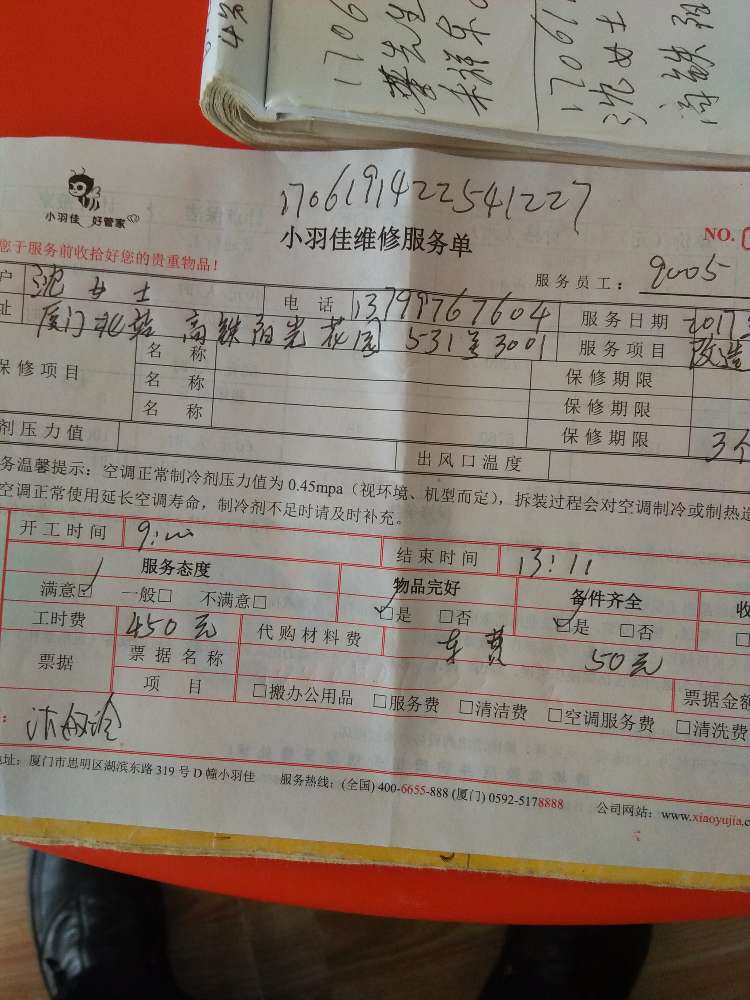 1706
1706191422541227
小羽佳 好管家
小羽佳维修服务单
NO.
您于服务前收拾好您的贵重物品！
服务员工： 9005
户 沈女士 电话 13799767604 服务日期 2017
址 厦门北站 高铁阳光花园 531 3001 服务项目 改造
保修项目 名称 保修期限
名称 保修期限
名称 保修期限 3个
剂压力值 出风口温度
务温馨提示：空调正常制冷剂压力值为 0.45mpa（视环境、机型而定），拆装过程会对空调制冷或制热造
空调正常使用延长空调寿命，制冷剂不足时请及时补充。
开工时间 9: 结束时间 13:11
服务态度 物品完好 备件齐全 收
满意☑ 一般□ 不满意□ ☑是 □否 ☑是 □否 □
工时费 450元 代购材料费 车费 50元
票据 票据名称 票据金额
项目 □搬办公用品 □服务费 □清洁费 □空调服务费 □清洗费
地址：厦门市思明区湖滨东路 319 号 D 幢小羽佳 服务热线：(全国) 400-6655-888 (厦门) 0592-5178888 公司网站：www.xiaoyujia.c